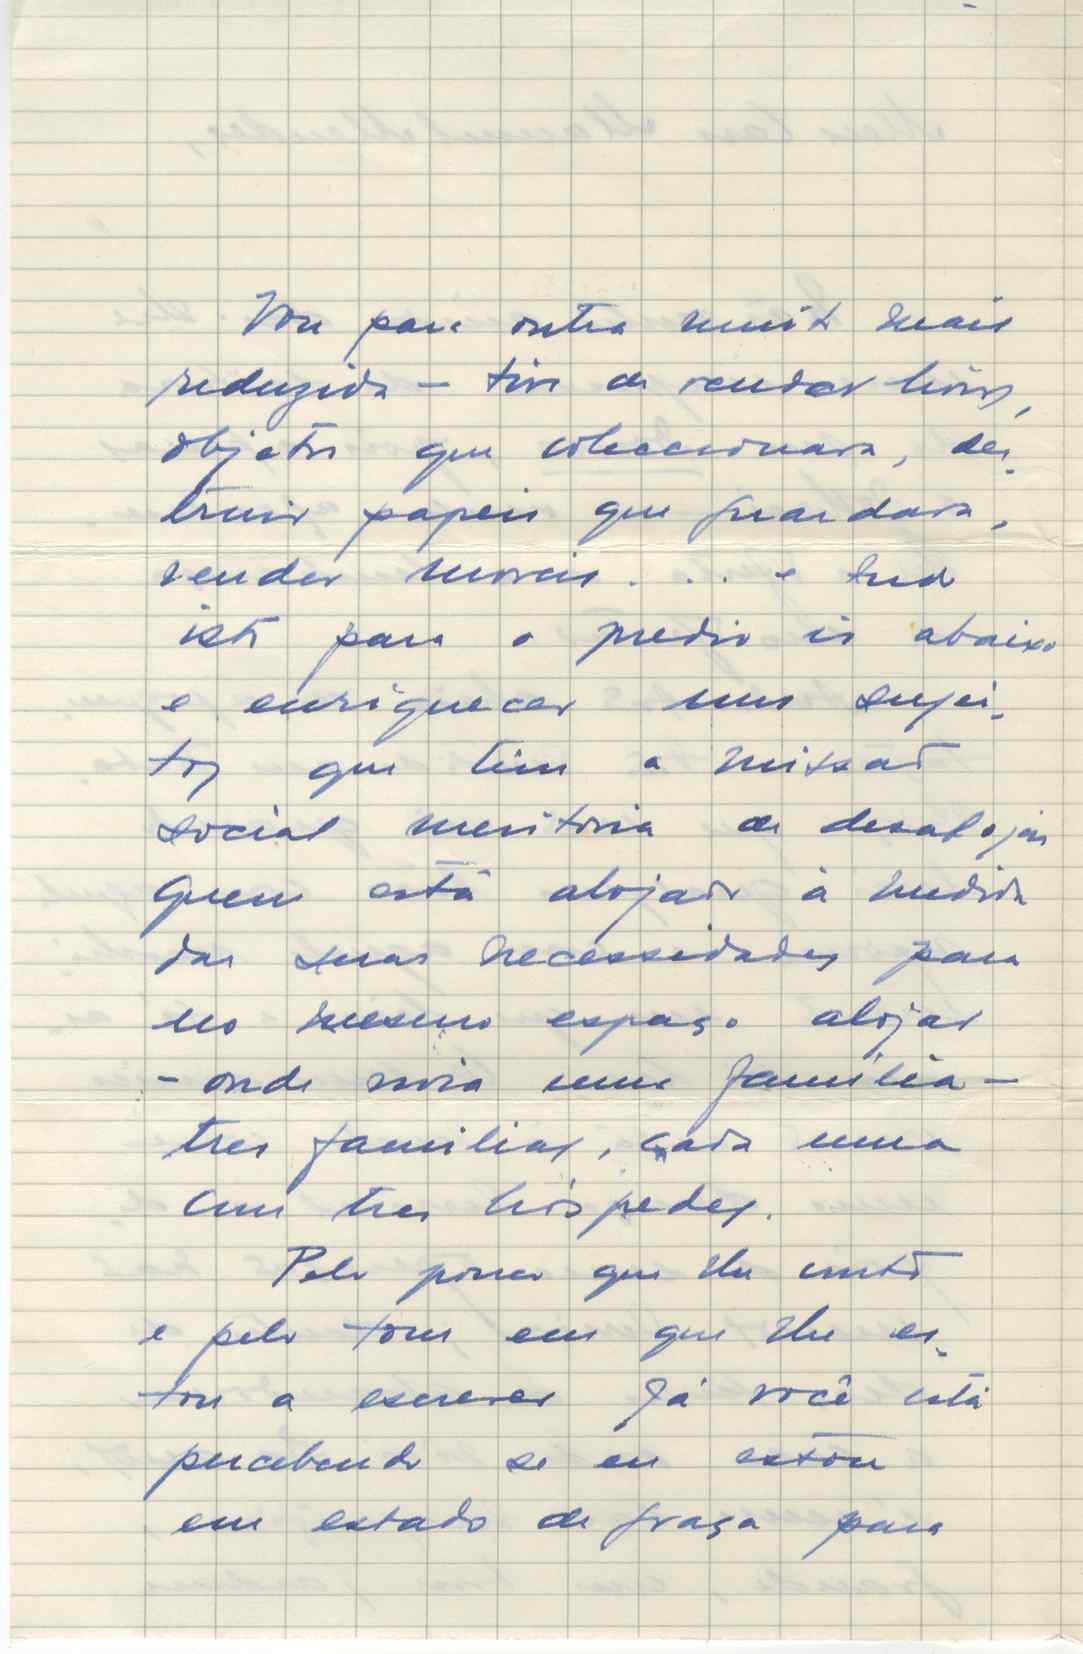 Vou para outra muito mais
reduzida – tive de vender livros,
objetos que coleccionara, des-
truir papeis que guardara,
vender moveis. . . e tudo
isto para o predio ir abaixo
e enriquecer uns sujei-
tos que têm a missão
social meritoria de desalojar
quem está alojado à medida
das suas necessidades para
no mesmo espaço alojar
– onde vivia uma familia –
tres familias, cada uma
com tres hóspedes.
Pelo pouco que lhe conto
e pelo tom em que lhe es-
tou a escrever já você está
percebendo se eu estou
em estado de graça para